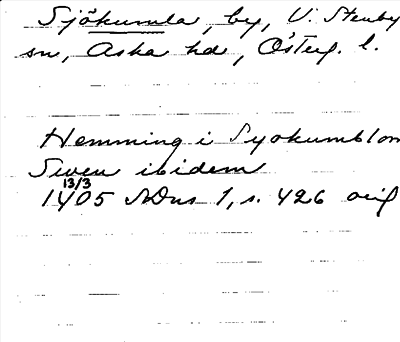 Sjökumla, by, V. Stenby
sn, Aska hd, Österg. l.
Hemming i Syokumblom
Swen ibidem
13/3
1405 SDns 1, s. 426 orig